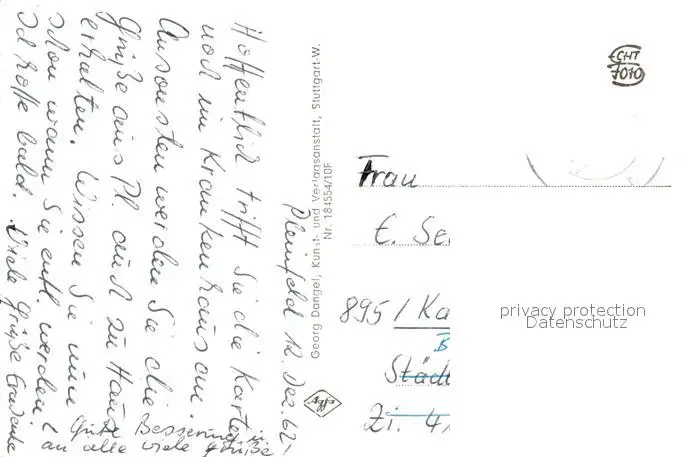 Pleinfeld 12. Dez. 62
Hoffentlich trifft Sie die Karte
noch im Krankenhaus an.
Ansonsten werden Sie die
Grüße aus Pl. auch zu Hause
erhalten. Wissen Sie nun
schon wann Sie entl. werden?
Ich hoffe bald. Viele Grüße
Gute Besserung
an alle viele Grüße
Georg Dangel, Kunst- und Verlagsanstalt, Stuttgart-W.
Nr. 184554/10F
Agfa
ECHT
FOTO
Frau
E. Se
895 / Ka
B
Städt
Zi. 4
privacy protection
Datenschutz